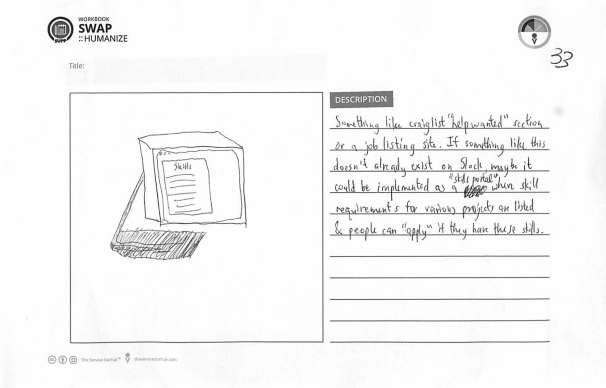 WORKBOOK
SWAP
::HUMANIZE
33
Title:
DESCRIPTION
Skills
Something like craiglist "help wanted" section
or a job listing site. If something like this
doesn't already exist on Slack, maybe it
could be implemented as a "skills portal" where skill
requirements for various projects are listed
& people can "apply" if they have these skills.
The Service Startup™
theservicestartup.com